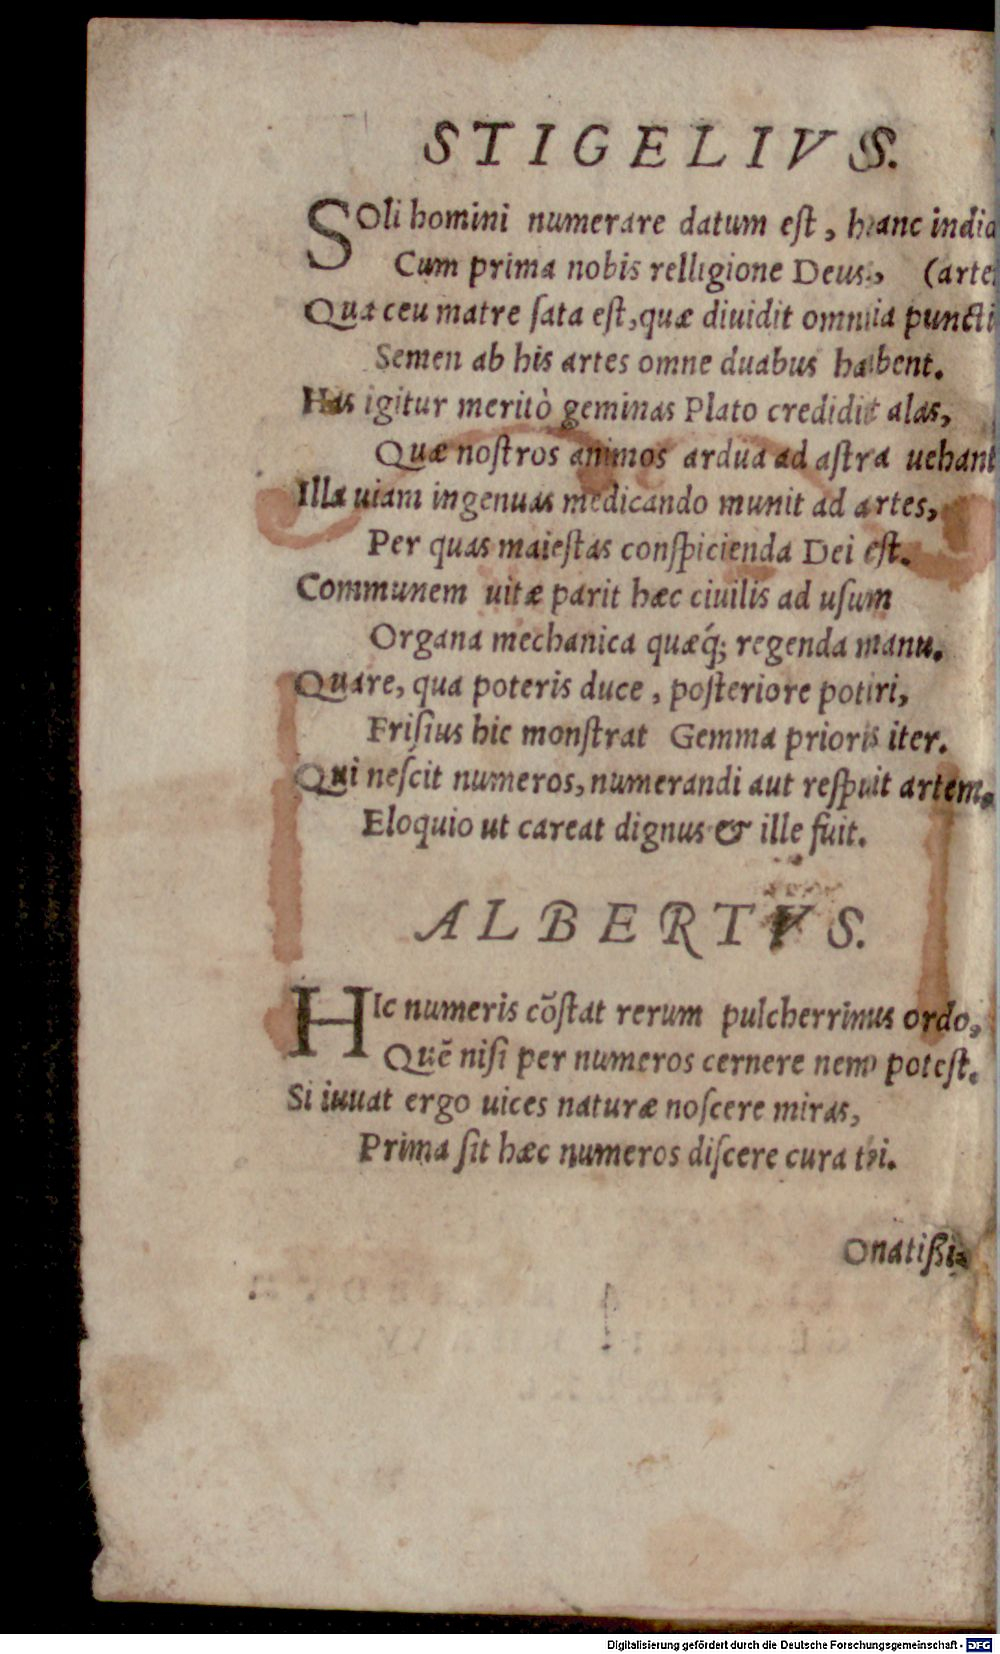 STIGELIVS.
SOli homini numerare datum est, hanc indid
Cum prima nobis relligione Deus, (arte
Qua ceu matre sata est, quæ diuidit omnia puncti
Semen ab his artes omne duabus habent.
Has igitur meritò geminas Plato credidit alas,
Quæ nostros animos ardua ad astra uehant
Illa uiam ingenuas medicando munit ad artes,
Per quas maiestas conspicienda Dei est.
Communem uitæ parit hæc ciuilis ad usum
Organa mechanica quæq́; regenda manu.
Quare, qua poteris duce, posteriore potiri,
Frisius hic monstrat Gemma prioris iter.
Qui nescit numeros, numerandi aut respuit artem,
Eloquio ut careat dignus & ille fuit.
ALBERTVS.
HIc numeris cõstat rerum pulcherrimus ordo,
Quẽ nisi per numeros cernere nemo potest.
Si iuuat ergo uices naturæ noscere miras,
Prima sit hæc numeros discere cura tibi.
Onatißi-
Digitalisierung gefördert durch die Deutsche Forschungsgemeinschaft - DFG